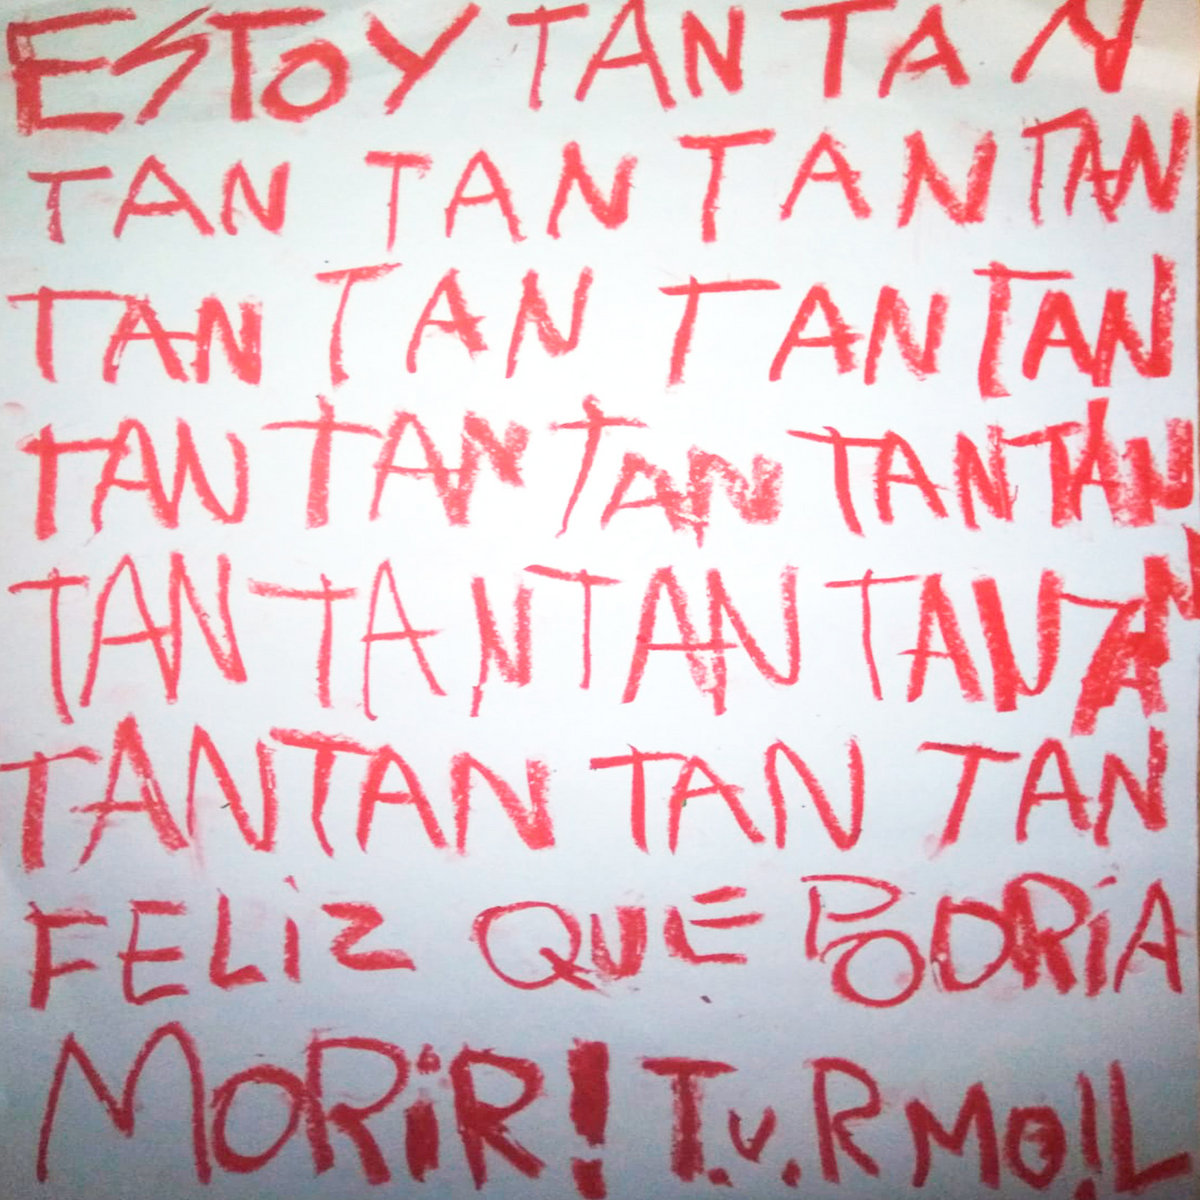 ESTOY TAN TAN
TAN TAN TAN TAN
TAN TAN TAN TAN
TAN TAN TAN TAN TAN
TAN TAN TAN TAN TAN
TAN TAN TAN TAN
FELiZ QUE PODRiA
MORiR! T.v.RMO!L